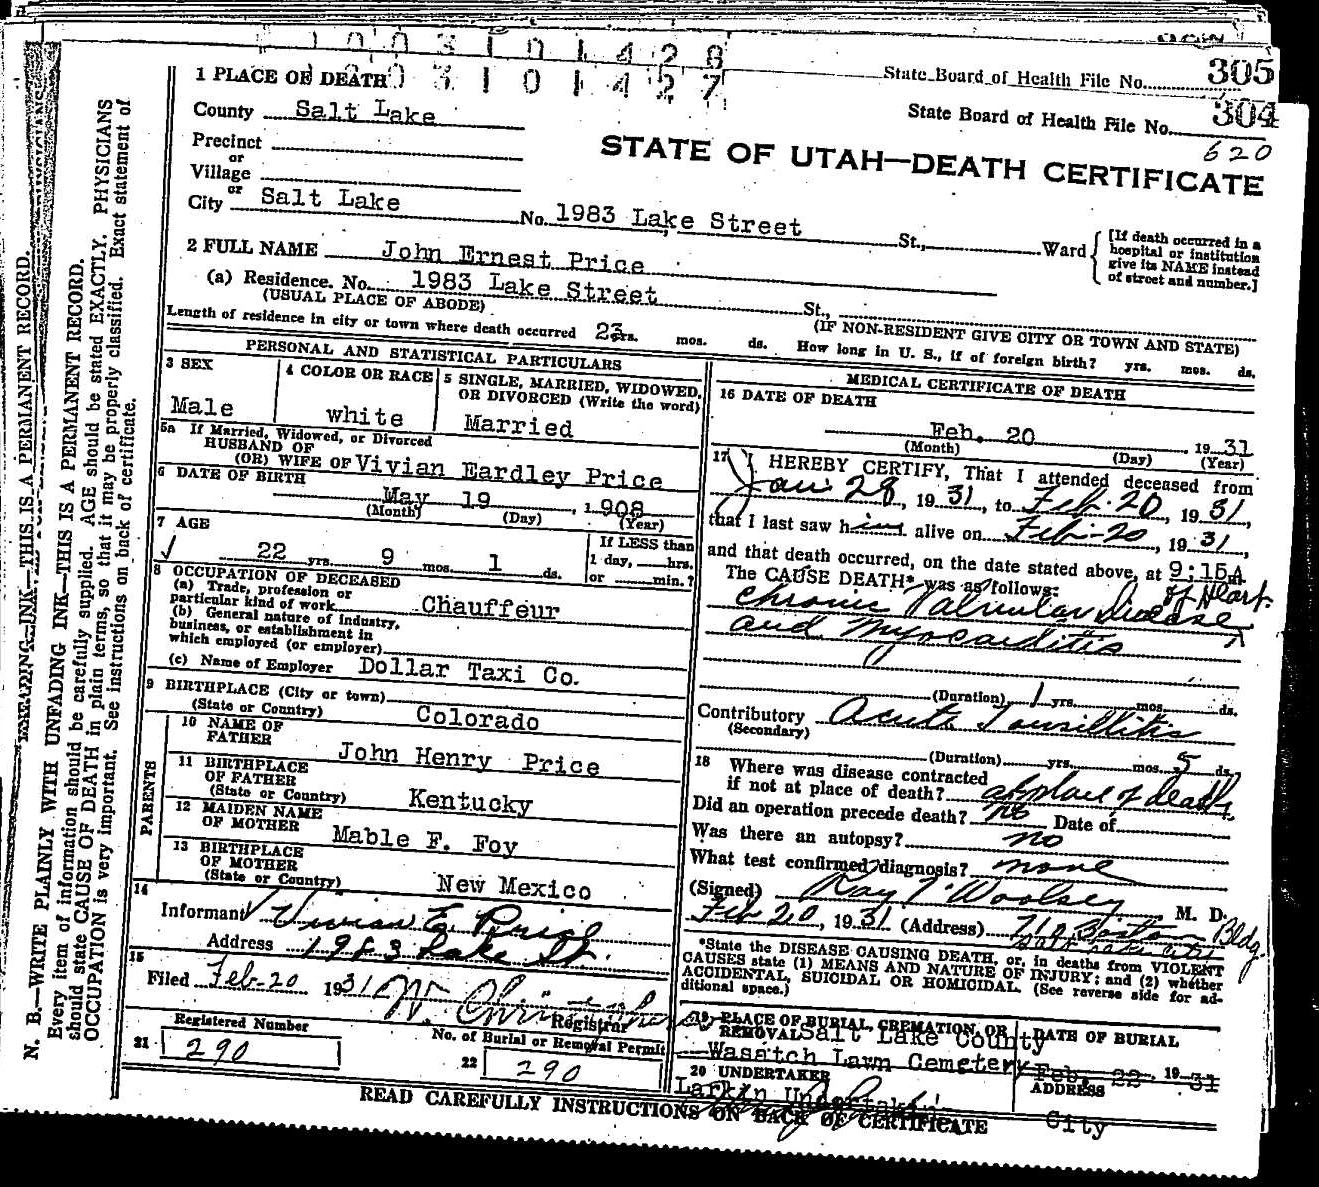 1003101428
1003101427
State Board of Health File No. 305
State Board of Health File No. 304
620
STATE OF UTAH—DEATH CERTIFICATE
1 PLACE OF DEATH
County Salt Lake
Precinct
or
Village
or
City Salt Lake No. 1983 Lake Street St., Ward
[If death occurred in a
hospital or institution
give its NAME instead
of street and number.]
2 FULL NAME John Ernest Price
(a) Residence. No. 1983 Lake Street St.,
(USUAL PLACE OF ABODE) (IF NON-RESIDENT GIVE CITY OR TOWN AND STATE)
Length of residence in city or town where death occurred 23 yrs. mos. ds. How long in U. S., if of foreign birth? yrs. mos. ds.
PERSONAL AND STATISTICAL PARTICULARS
3 SEX
Male
4 COLOR OR RACE
white
5 SINGLE, MARRIED, WIDOWED,
OR DIVORCED (Write the word)
Married
5a If Married, Widowed, or Divorced
HUSBAND OF
(OR) WIFE OF Vivian Eardley Price
6 DATE OF BIRTH
May 19, 1908
(Month) (Day) (Year)
7 AGE
22 yrs. 9 mos. 1 ds.
If LESS than
1 day, hrs.
or min.?
8 OCCUPATION OF DECEASED
(a) Trade, profession or
particular kind of work Chauffeur
(b) General nature of industry,
business, or establishment in
which employed (or employer)
(c) Name of Employer Dollar Taxi Co.
9 BIRTHPLACE (City or town)
(State or Country) Colorado
PARENTS
10 NAME OF
FATHER John Henry Price
11 BIRTHPLACE
OF FATHER
(State or Country) Kentucky
12 MAIDEN NAME
OF MOTHER Mable F. Foy
13 BIRTHPLACE
OF MOTHER
(State or Country) New Mexico
14
Informant Vivian E. Price
Address 1983 Lake St.
15
Filed Feb-20 1931
Registrar
Registered Number
21 290
No. of Burial or Removal Permit
22 290
MEDICAL CERTIFICATE OF DEATH
16 DATE OF DEATH
Feb. 20 1931
(Month) (Day) (Year)
17 I HEREBY CERTIFY, That I attended deceased from
Jan 28, 1931, to Feb-20, 1931,
that I last saw him alive on Feb-20, 1931,
and that death occurred, on the date stated above, at 9:15A m.
The CAUSE DEATH* was as follows:
Chronic Valvular Disease of Heart
and Myocarditis
(Duration) 1 yrs. mos. ds.
Contributory Acute Tonsillitis
(Secondary)
(Duration) yrs. mos. 5 ds.
18 Where was disease contracted
if not at place of death? at place of death
Did an operation precede death? no Date of
Was there an autopsy? no
What test confirmed diagnosis? none
(Signed) Ray T. Woolsey M. D.
Feb 20, 1931 (Address) 710 Boston Bldg.
Salt Lake City
*State the DISEASE CAUSING DEATH, or, in deaths from VIOLENT
CAUSES state (1) MEANS AND NATURE OF INJURY; and (2) whether
ACCIDENTAL, SUICIDAL OR HOMICIDAL. (See reverse side for ad-
ditional space.)
19 PLACE OF BURIAL, CREMATION, OR
REMOVAL Salt Lake County
Wasatch Lawn Cemetery
DATE OF BURIAL
Feb. 22 1931
20 UNDERTAKER
Larkin
ADDRESS
City
READ CAREFULLY INSTRUCTIONS ON BACK OF CERTIFICATE
N. B.—WRITE PLAINLY WITH UNFADING INK—THIS IS A PERMANENT RECORD.
Every item of information should be carefully supplied. AGE should be stated EXACTLY. PHYSICIANS
should state CAUSE OF DEATH in plain terms, so that it may be properly classified. Exact statement of
OCCUPATION is very important. See instructions on back of certificate.
INK—THIS IS A PERMANENT RECORD.